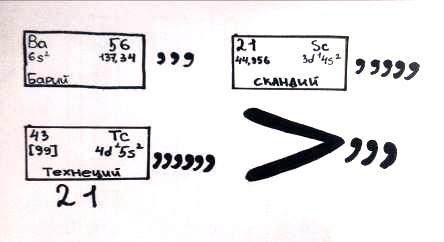 Ba 56
6s² 137,34 ,,,
Барий
21 Sc
44,956 3d¹4s² ,,,,,
скандий
43 Tc
[99] 4d⁵5s² ,,,,,,
Технеций
21
> ,,,